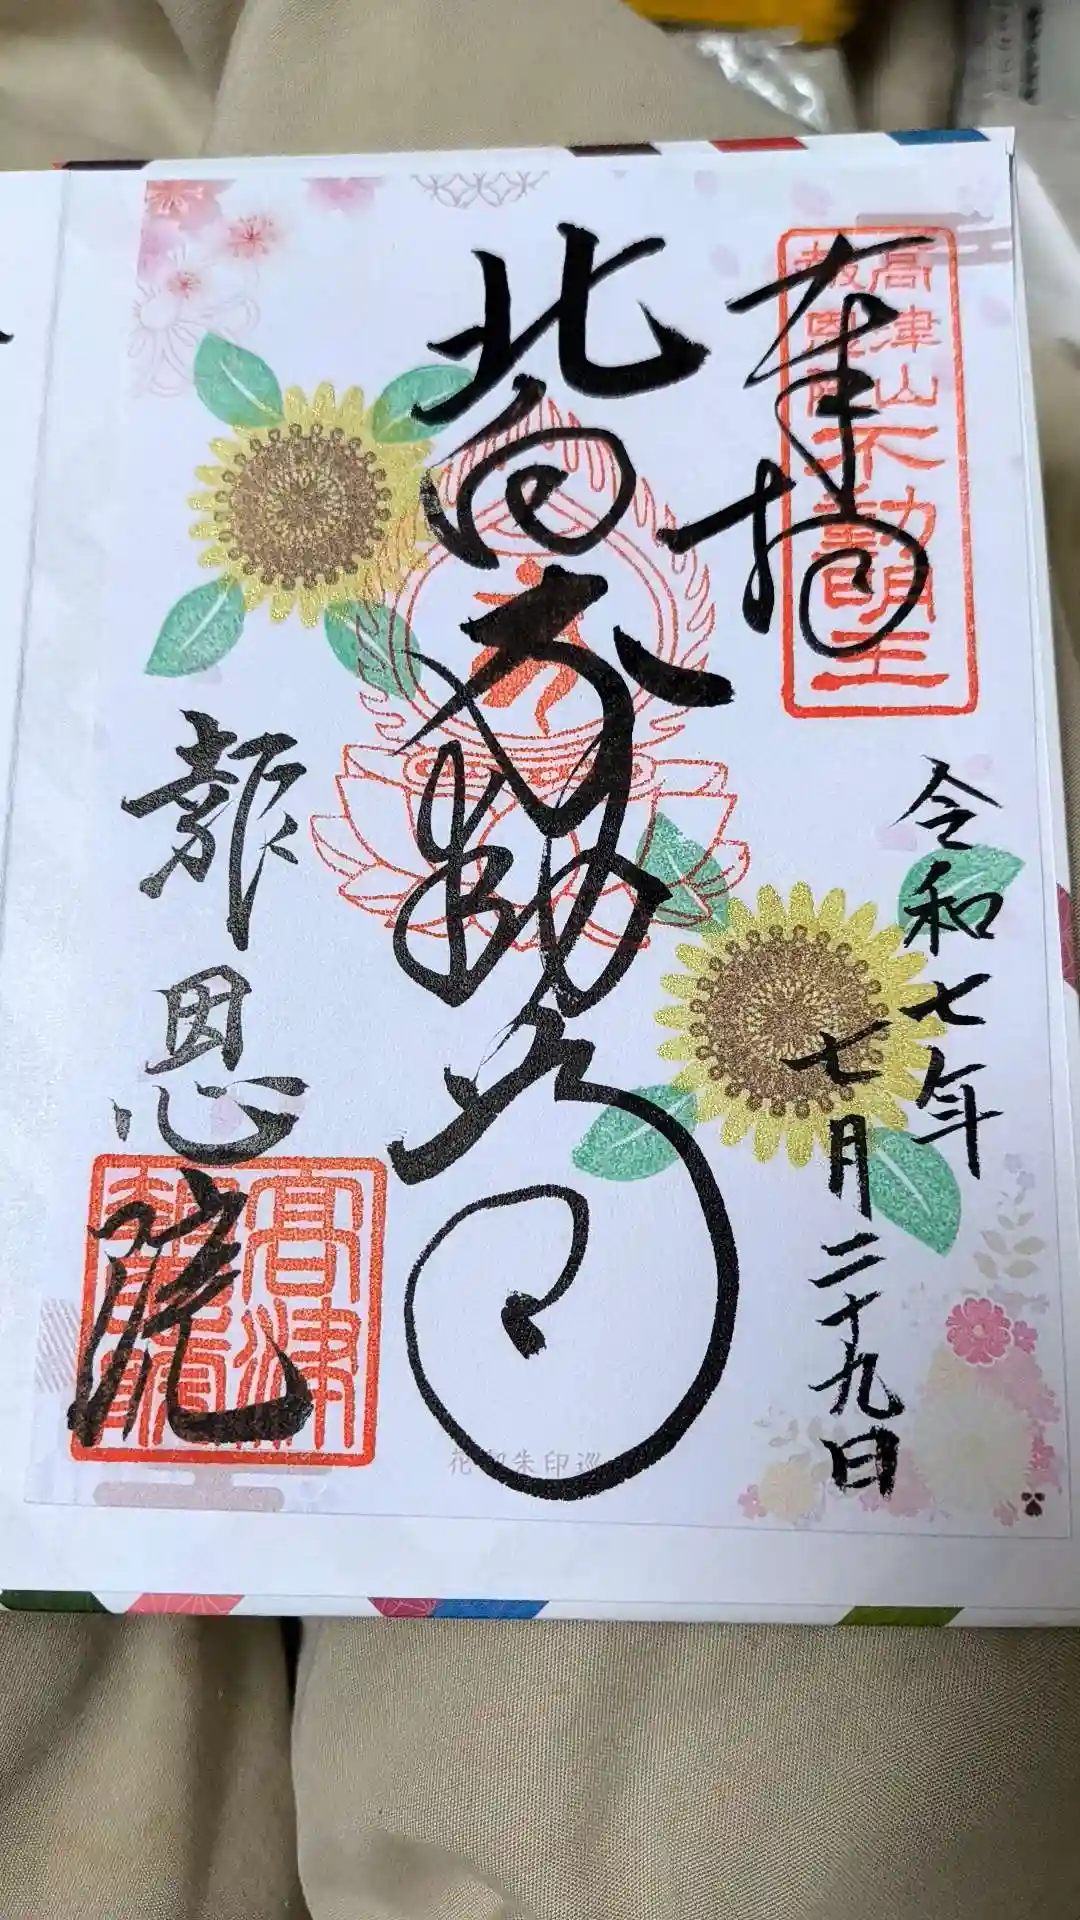 奉拝
高津山
報恩院
不動明王
令和七年
七月二十九日
北向不動尊
報恩院
高津
報恩院
花御朱印巡